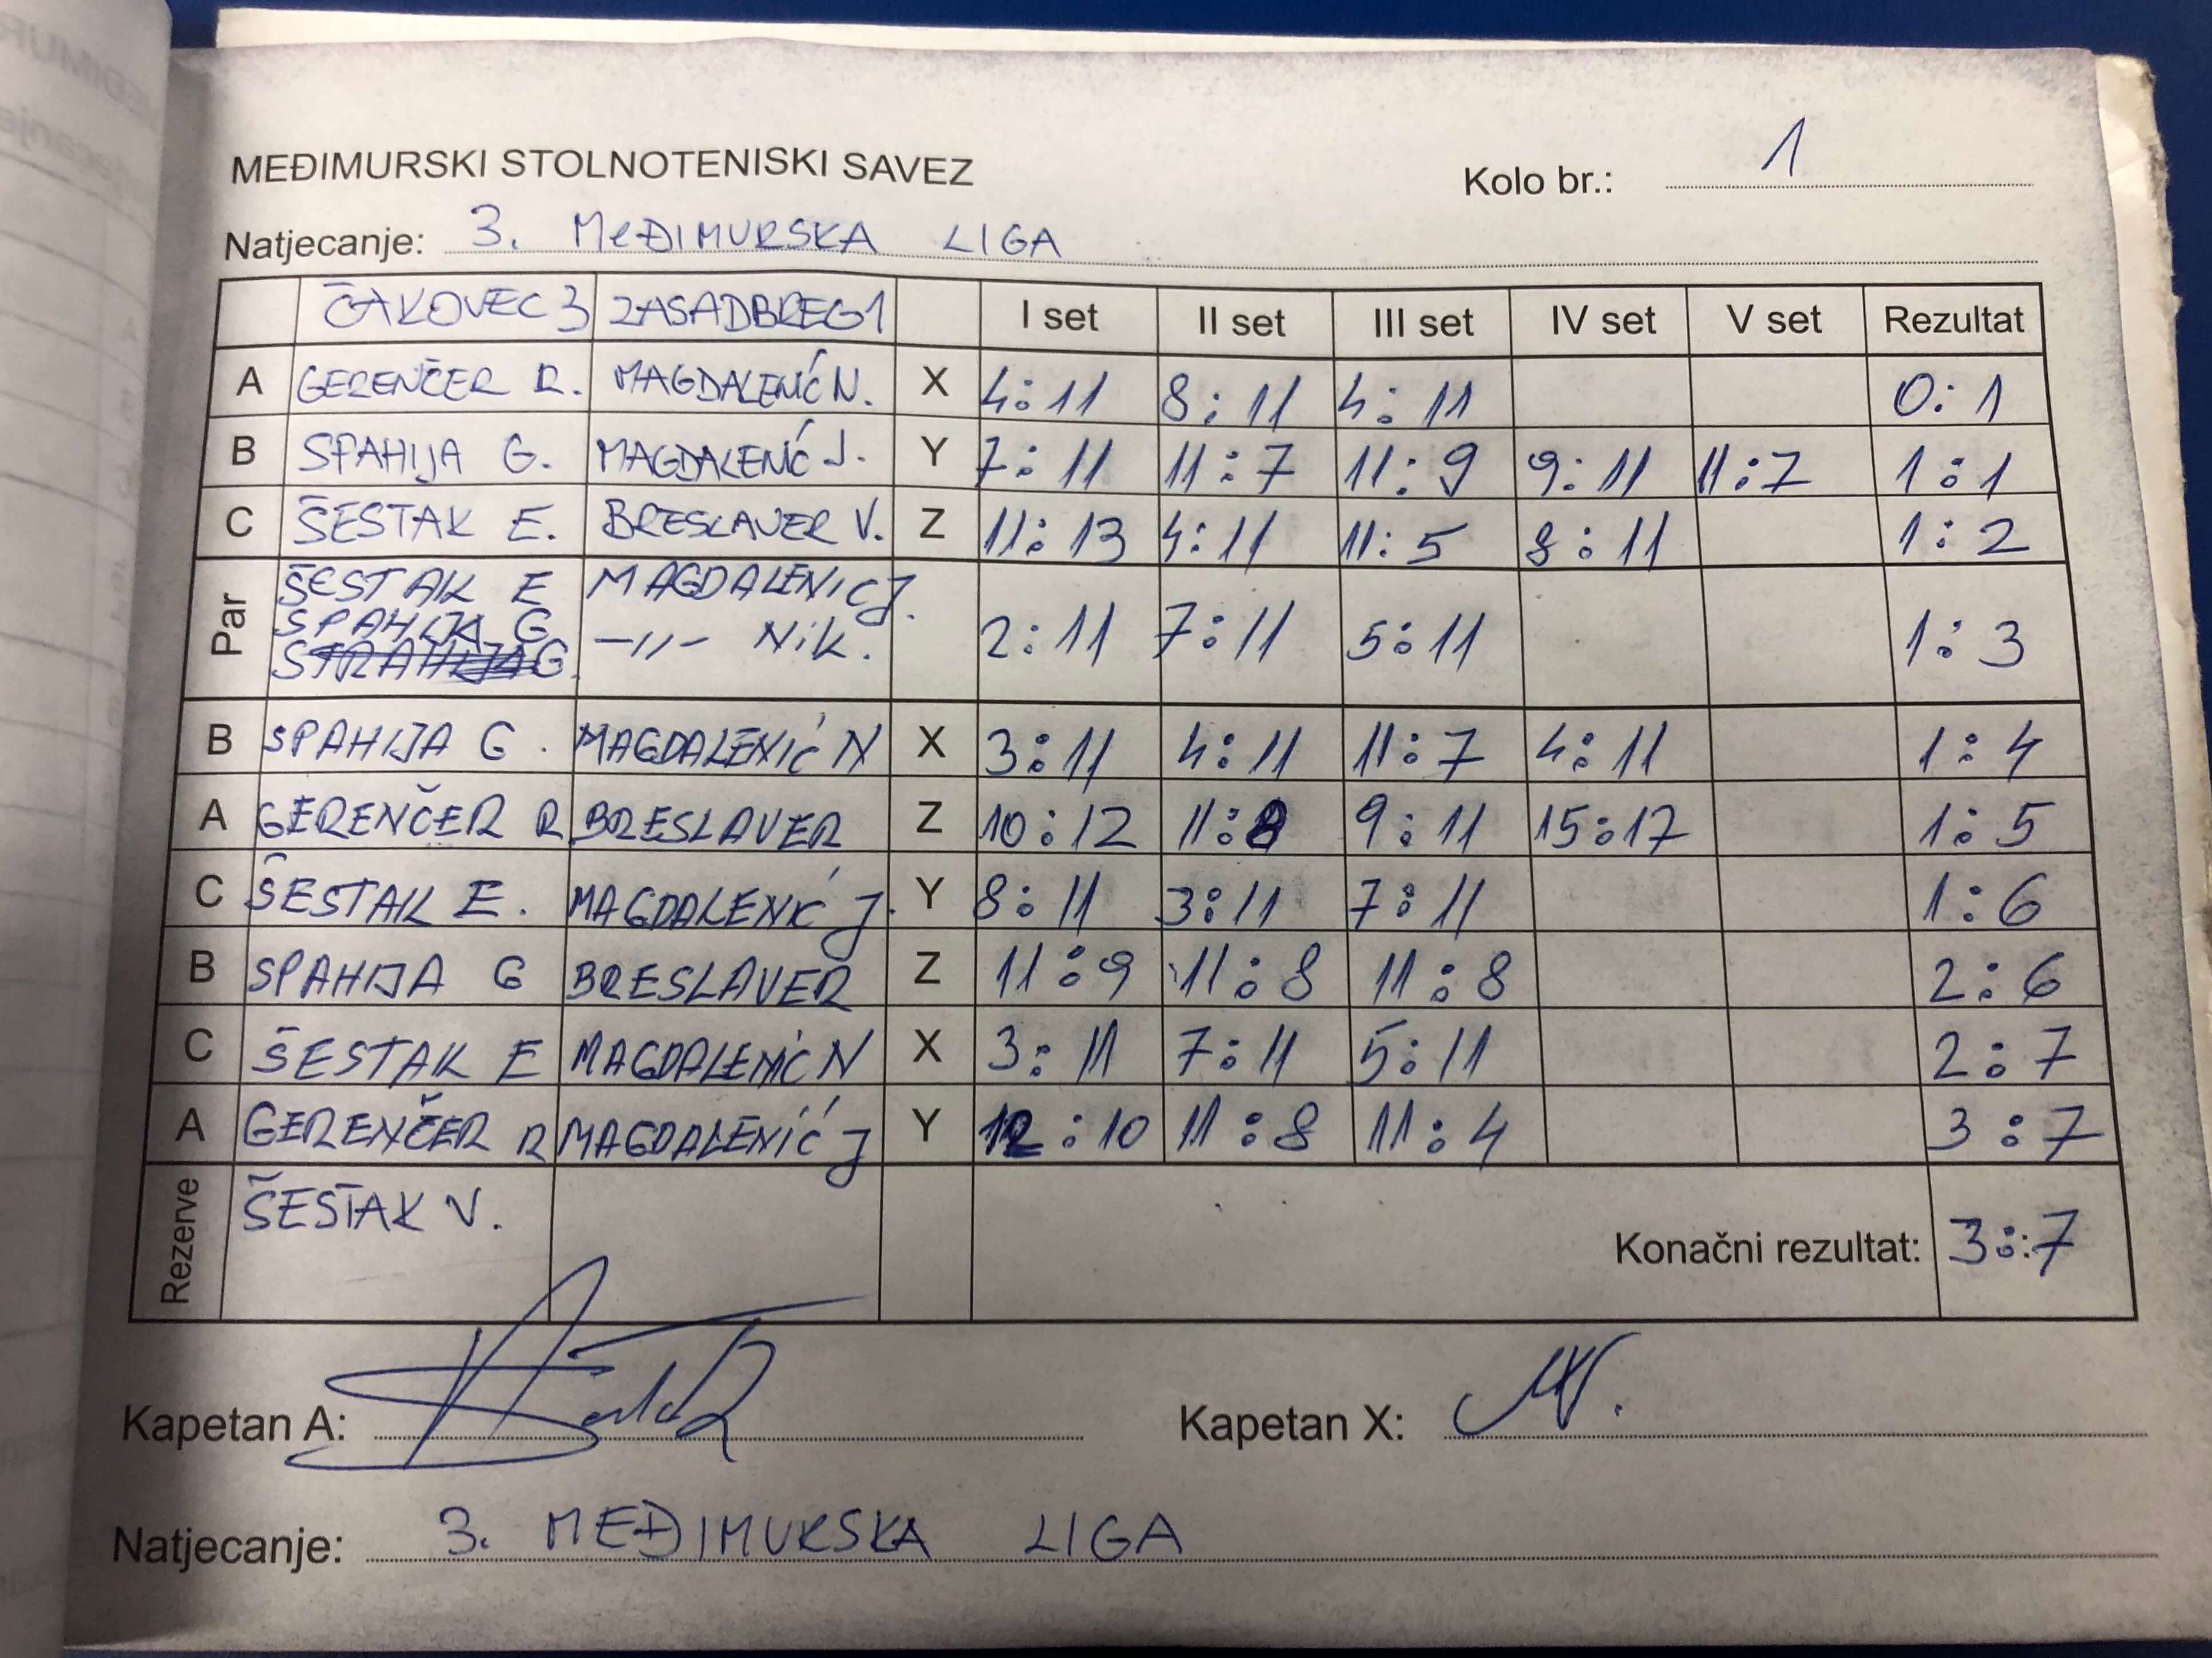 MEĐIMURSKI STOLNOTENISKI SAVEZ Kolo br.: 1
Natjecanje: 3. MEĐIMURSKA LIGA
ČAKOVEC 3 ZASADBREG 1 I set II set III set IV set V set Rezultat
A GERENČER R. MAGDALENIĆ N. X 4:11 8:11 4:11 0:1
B SPAHIJA G. MAGDALENIĆ J. Y 7:11 11:7 11:9 9:11 11:7 1:1
C ŠESTAK E. BRESLAUER V. Z 11:13 4:11 11:5 8:11 1:2
Par ŠESTAK E MAGDALENIC J.
SPAHIJA G -11- Nik. 2:11 7:11 5:11 1:3
B SPAHIJA G. MAGDALENIĆ N X 3:11 4:11 11:7 4:11 1:4
A GERENČER R BRESLAVER Z 10:12 11:8 9:11 15:17 1:5
C ŠESTAK E. MAGDALENIĆ J. Y 8:11 3:11 7:11 1:6
B SPAHIJA G BRESLAVER Z 11:9 11:8 11:8 2:6
C ŠESTAK E MAGDALENIĆ N X 3:11 7:11 5:11 2:7
A GERENČER R MAGDALENIĆ J Y 12:10 11:8 11:4 3:7
Rezerve ŠESTAK V. Konačni rezultat: 3:7
Kapetan A: Kapetan X:
Natjecanje: 3. MEĐIMURSKA LIGA